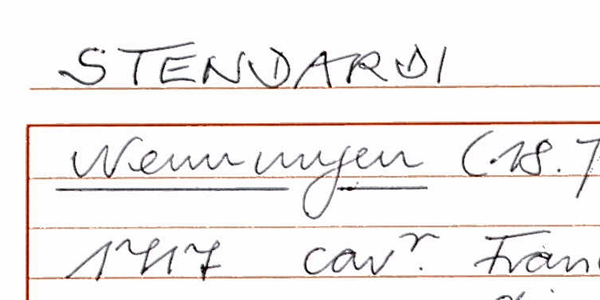 STENDARDI
Wenningen (.18.
1717 cavr. Fran